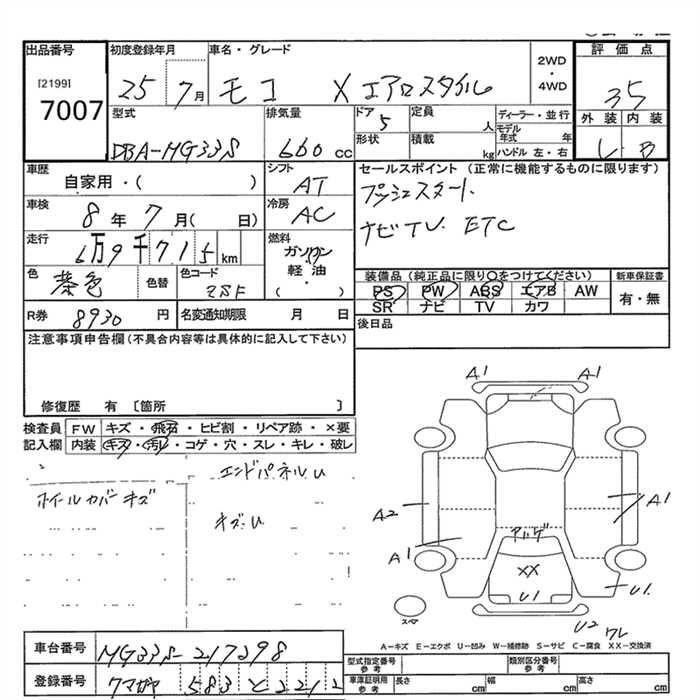 出品番号
[2199]
7007
初度登録年月
25 7月
車名・グレード
モコ X エアロスタイル
2WD
・
4WD
評価点
3.5
外装 内装
C B
型式
DBA-MG33S
排気量
660 cc
ドア
5
定員
人
形状
積載
kg
ディーラー・並行
モデル年式 年
ハンドル 左・右
車歴
自家用・( )
シフト
AT
車検
8年 7月( 日)
冷房
AC
走行
6万9千715km
燃料
ガソリン
軽油
( ・ )
色
茶色
色替
色コード
ZSF
R券
8930 円
名変通知期限 月 日
セールスポイント (正常に機能するものに限ります)
プッシュスタート.
ナビTV. ETC
装備品(純正品に限り○をつけてください)
PS PW ABS エアB AW
SR ナビ TV カワ
新車保証書
有・無
後日品
注意事項申告欄(不具合内容等は具体的に記入して下さい)
修復歴 有 〔箇所 〕
検査員記入欄
FW キズ・飛石・ヒビ割・リペア跡・×要
内装 キズ・汚レ・コゲ・穴・スレ・キレ・破レ
エンドパネルU
ホイールカバーキズ
キズ.U
A1 A1
A2
A1
A1
アゲ
XX
U1
U1.
U2 ワレ
スペア
A-キズ E-エクボ U-凹み W-補修跡 S-サビ C-腐食 XX-交換済
車台番号
MG33S-217298
登録番号
クマガヤ 583 と 2212
型式指定番号
参考
類別区分番号
参考
車庫証明用
参考
長さ cm
幅 cm
高さ cm